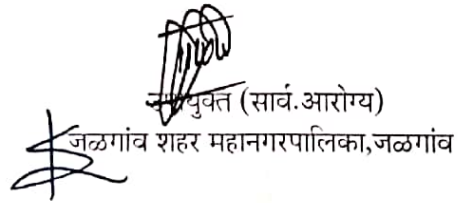 उपायुक्त (सार्व.आरोग्य)
जळगांव शहर महानगरपालिका,जळगांव